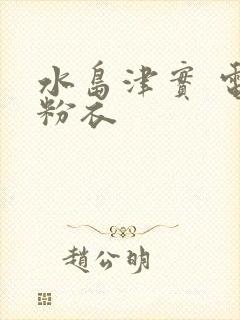 水島津實 電
粉衣
趙公明